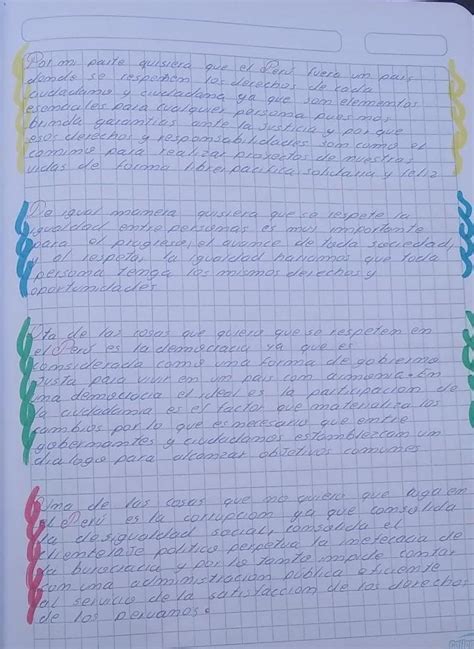 Por mi parte quisiera que el Perú fuera un país
donde se respenten los derechos de cada
cuidadano y cuidadana, ya que son elementos
esenciales para cualquier persona pues nos
brinda garantias ante la Justicia y por que
esos derechos y responsabilidades son como el
camino para realizar proyectos de nuestras
vidas de forma libre, pacifica, solidaria y feliz
De igual manera quisiera que se respete la
igualdad entre personas es muy importante
para el progreso, el avance de toda sociedad,
y al respetar la igualdad hariamos que toda
persona tenga los mismos derechos y
oportunidades
Ota de las cosas que quiero que se respeten en
el Perú es la democracia ya que es
considerada como una forma de gobierno
Justa para vivir en un país con armonia. En
una democracia el ideal es la participación de
la ciudadania es el factor que materializa los
cambios por lo que es necesario que entre
gobernantes y ciudadanos establezcan un
dialogo para alcanzar objetivos comunes
Una de las cosas que no quiero que haga en
el Perú es la corrupcion ya que consolida
la desigualdad social, consolida el
clientelaje politico perpetua la ineficacia de
la burocracia y por lo tanto impide contar
con una administración publica eficiente
al servicio de la satisfaccion de los derechos
de los peruanos.